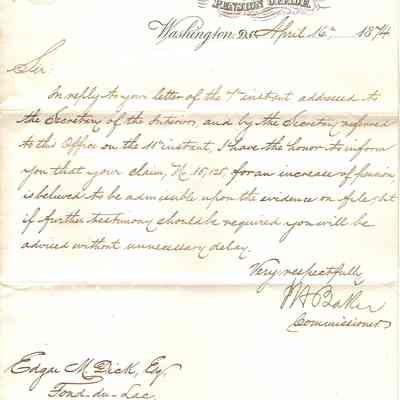 PENSION OFFICE.
Washington, D.C. April 16th 1874
Sir:
In reply to your letter of the 7th instant addressed to
the Secretary of the Interior, and by the Secretary referred
to this Office on the 11th instant, I have the honor to inform
you that your claim, No 15,125 for an increase of pension
is believed to be admissible upon the evidence on file; but
if further testimony should be required you will be
advised without unnecessary delay.
Very respectfully
Baker
Commissioner
Edgar M. Dick, Esq.
Fond-du-Lac